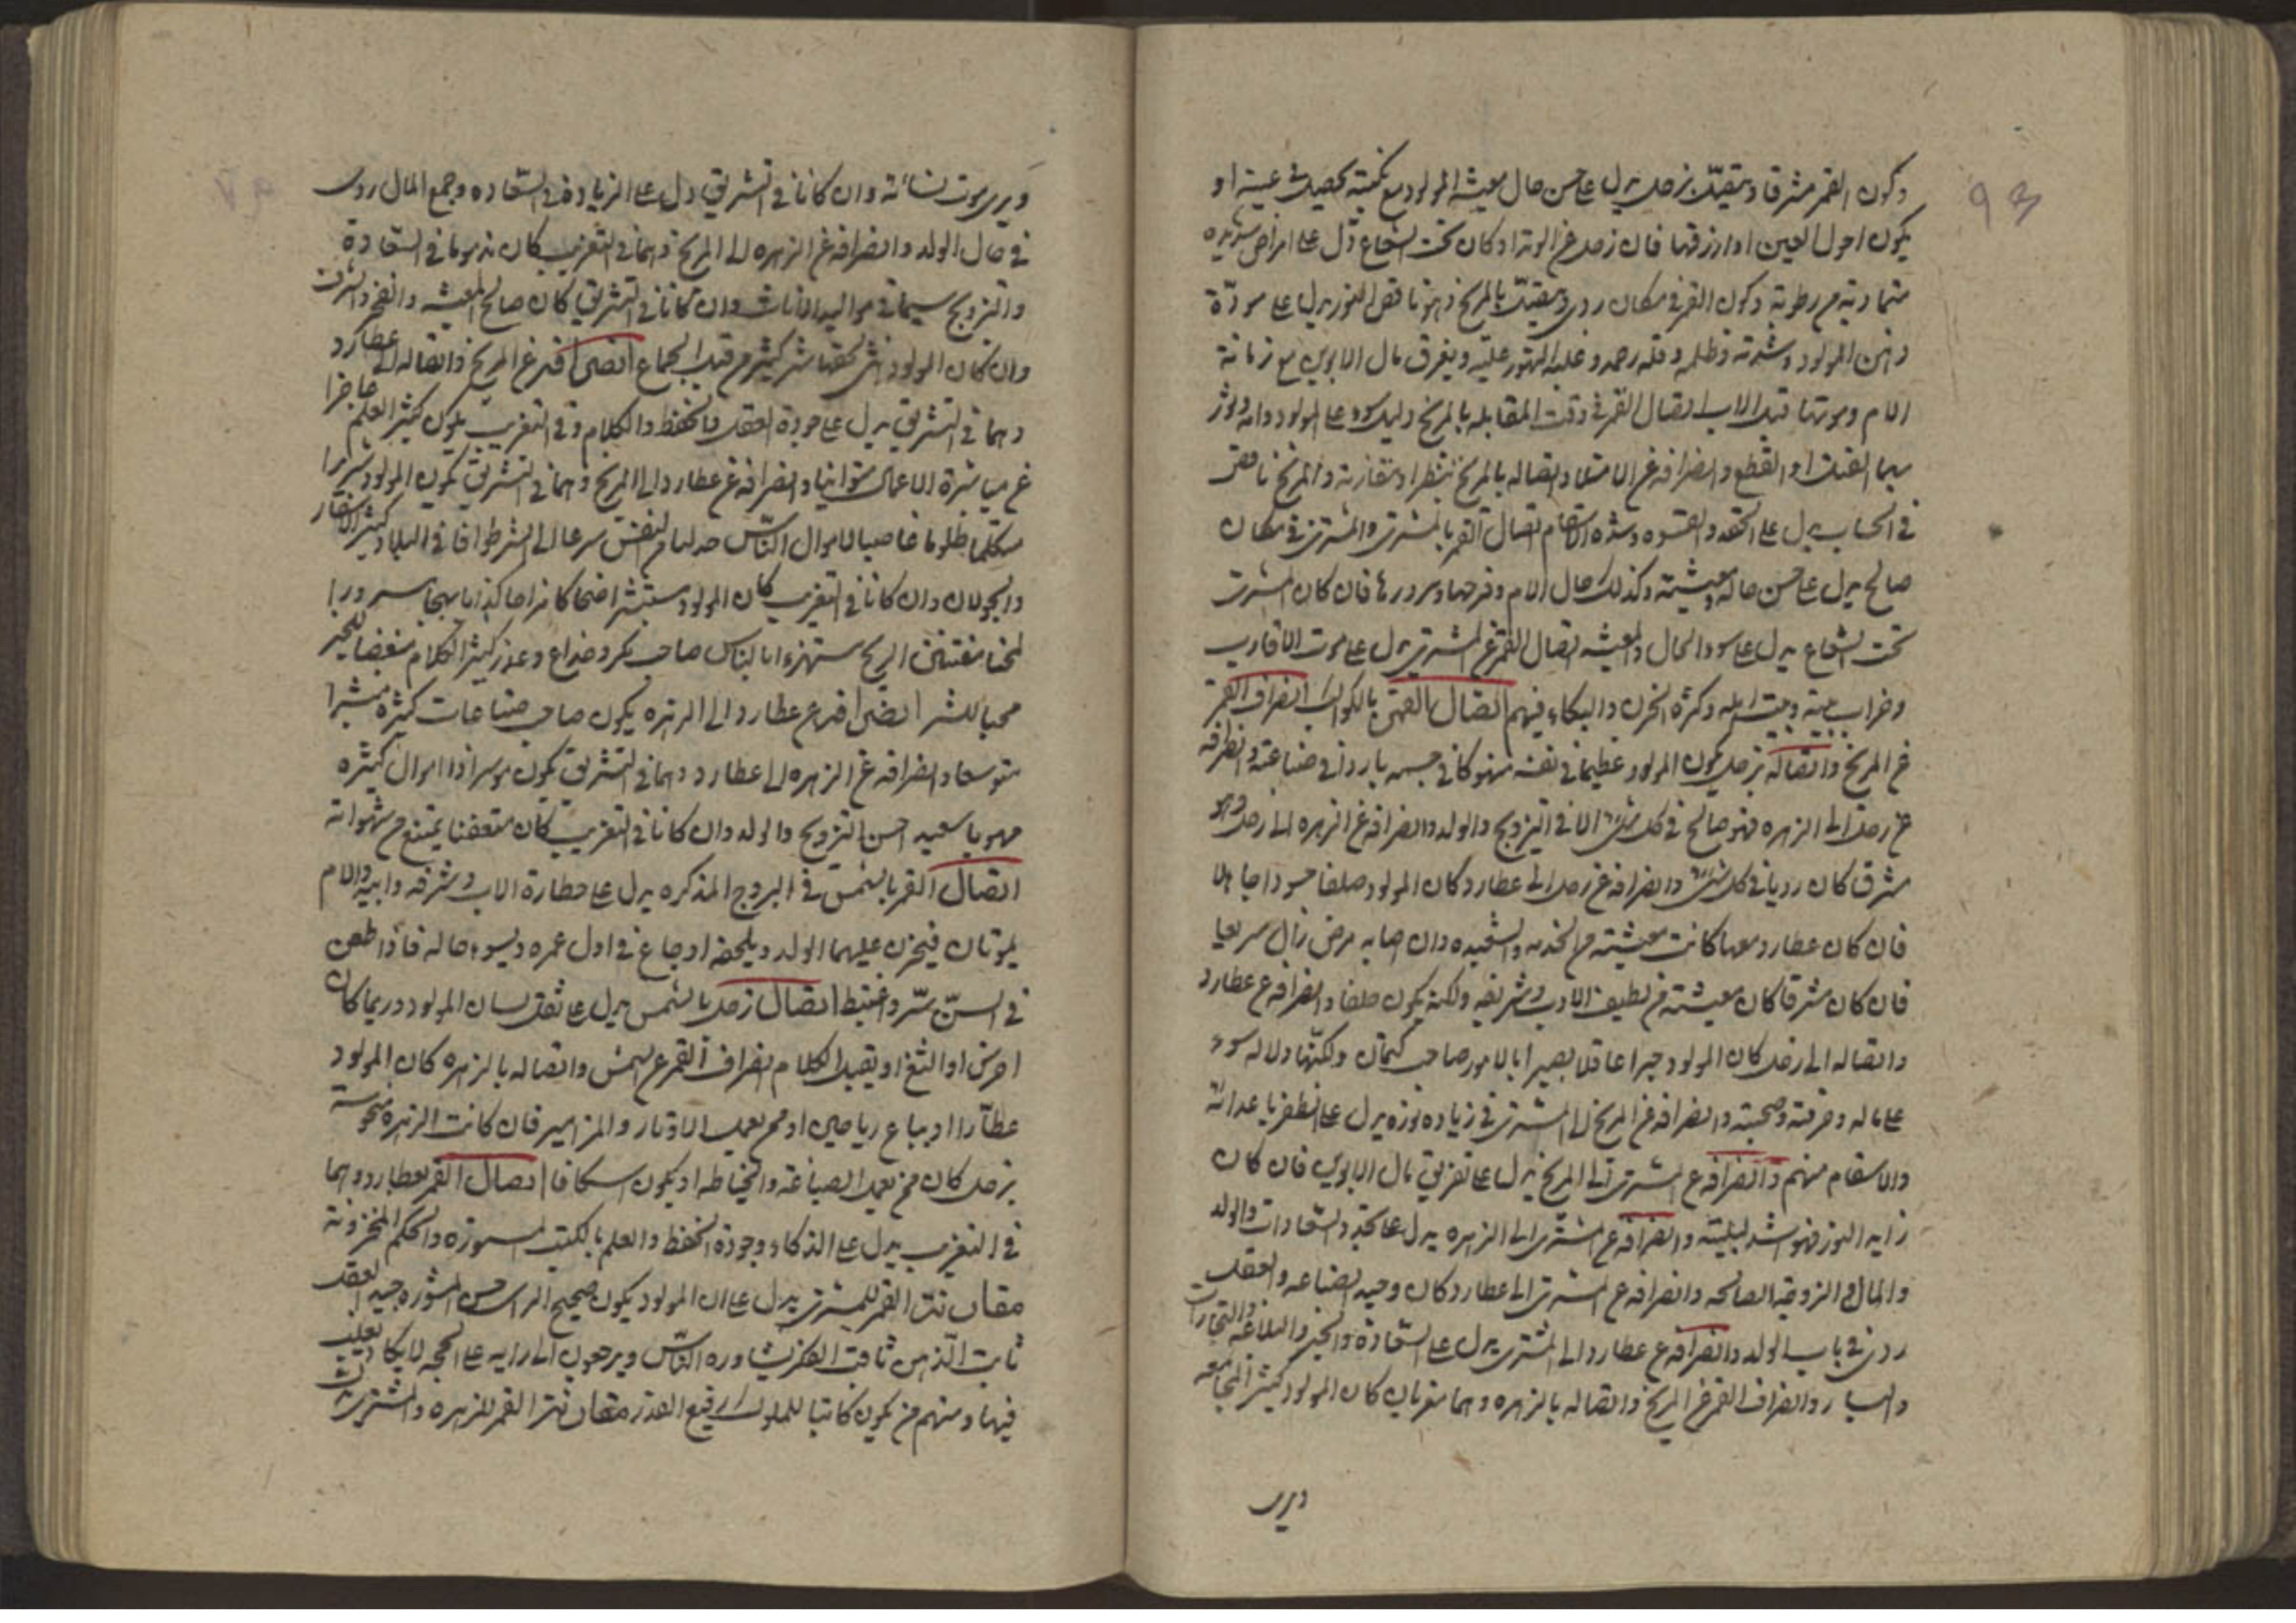 93
وكون القمر مشرقا ومتصلا بزحل يدل على حسن حال معيشة المولود مع نكبته تحصل في عينيه او
يكون احول العين او ازرقها فان زحل في الوتد او كان تحت الشعاع دل على امراض شديدة
متمادية من رطوبة وكون القمر في مكان ردي ومتصل بالمريخ وهو ناقص النور يدل على
ذهن المولود وشدته وظلمه وقلة رحمه وغلبة التهور عليه ويفرق مال الابوين مع زمانة
الام وموتها قبل الاب اتصال القمر في وقت المقابلة بالمريخ دليل سوء على المولود
القتل او القطع وانصرافه عن الامتلاء واتصاله بالمريخ بنظر او مقارنة والمريخ ناقص
في الحساب يدل على الحقد والقسوة وشدة اتصال القمر بالمشتري والمشتري في مكان
صالح يدل على حسن حاله ومعيشته وكذلك حال الام وفرحها وسرورها فان كان المشتري
تحت الشعاع يدل على سوء الحال والمعيشة اتصال القمر عن المشتري يدل على موت الاقارب
وخراب بيته وبيت اهله وكثرة الحزن والبكاء فيهم اتصال القمر بالكواكب انصراف القمر
عن المريخ واتصاله بزحل يكون المولود عظيما في نفسه منهوكا في جسمه باردا في صناعته وانصرافه
عن زحل الى الزهرة فهو صالح في كل شيء الا في التزويج والولد وانصرافه عن الزهرة الى زحل وهو
مشرق كان رديا في كل شيء وانصرافه عن زحل الى عطارد كان المولود صلفا حسودا جاهلا
فان كان عطارد معها كانت معيشته من الخدمة والشعبذة وان اصابه مرض زال سريعا
فان كان مشرقا كان معيشته من لطيف الادب وشريفه ولكنه يكون صلفا وانصرافه عن عطارد
واتصاله الى زحل كان المولود خبيرا عاقلا بصيرا بالامور صاحب كتمان ولكنها دلالة سوء
على ماله وحرفته وصحبته وانصرافه عن المريخ الى المشتري في زيادة نوره يدل على الظفر باعدائه
والانتقام منهم وانصرافه عن المشتري الى المريخ يدل على تفريق مال الابوين فان كان
زايد النور فهو اشد لبليته وانصرافه عن المشتري الى الزهرة يدل على محبة والسعادات والولد
والمال والزوجة الصالحة وانصرافه عن المشتري الى عطارد كان وحيد الصناعة والعقل
ردي في باب الولد وانصرافه عن عطارد الى المشتري يدل على السعادة والخير والبلاغة والتجارات
واليسار وانصراف القمر عن المريخ واتصاله بالزهرة وهما مغربان كان المولود كثير المجامعة
ويرى
ويرى موت نسائه وان كانا في التشريق دل على الزيادة في السعادة وجمع المال ردي
في حال الولد وانصرافه عن الزهرة الى المريخ وهما في التغريب كان مذموما في السعادة
والتزويج سيما في مواليد الاناث وان كانا في التشريق كان صالح المعيشة والفخر والشرف
وان كان المولود انثى لحقها شر كثير من قبل الجماع انصرافه عن المريخ واتصاله الى عطارد
وهما في التشريق يدل على جودة العقل والحفظ والكلام وفي التغريب يكون كثير العلم عاجزا
عن مباشرة الاعمال متوانيا وانصرافه عن عطارد الى المريخ وهما في التشريق يكون المولود شريرا
متكلما ظلوما غاصبا لاموال الناس النفس سرعا الى الشر طوافا في البلاد كثير الاسفار
والجولان وان كانا في التغريب كان المولود مستبشرا ضحاكا مزاحا كذابا مهجا مسرورا
الريح مستهزءا بالناس صاحب مكر وخداع وغدر كثير الكلام مبغضا للخير
محبا للشر انصرافه عن عطارد الى الزهرة يكون صاحب صناعات كثيرة مبشرا
متوسعا وانصرافه عن الزهرة الى عطارد وهما في التشريق يكون موسرا ذا اموال كثيرة
مهوبا سعيد حسن التزويج والولد وان كانا في التغريب كان متعففا يمتنع من شهواته
اتصال القمر بالشمس في البروج المذكرة يدل على خطارة الاب وشرفه وابيه والام
يموتان فيحزن عليهما الولد ويلحقه اوجاع في اول عمره ويسوء حاله فاذا طعن
في السن سر واغتبط اتصال زحل بالشمس يدل على ثقل لسان المولود وربما كان
اخرس او الثغ او يقيد الكلام انصراف القمر عن الشمس واتصاله بالزهرة كان المولود
عطارا او يباع رياحين او ممن يعمل الاوتار والمزامير فان كانت الزهرة منحوسة
بزحل كان ممن يعمل الصباغة والخياطة او يكون اسكافا اتصال القمر بعطارد وهما
في التغريب يدل على الذكاء وجودة الحفظ والعلم بالكتب المستورة والحكم المخزونة
مقارنة القمر للمشتري يدل على ان المولود يكون صحيح الراي حسن المشورة جيد العقل
ثابت الذهن ثاقب الفكر يشاوره الناس ويرجعون الى رايه على الحجة لا يكاد يغلب
فيها ومنهم من يكون كاتبا للملوك رفيع القدر مقارنة القمر للزهرة والمشتري